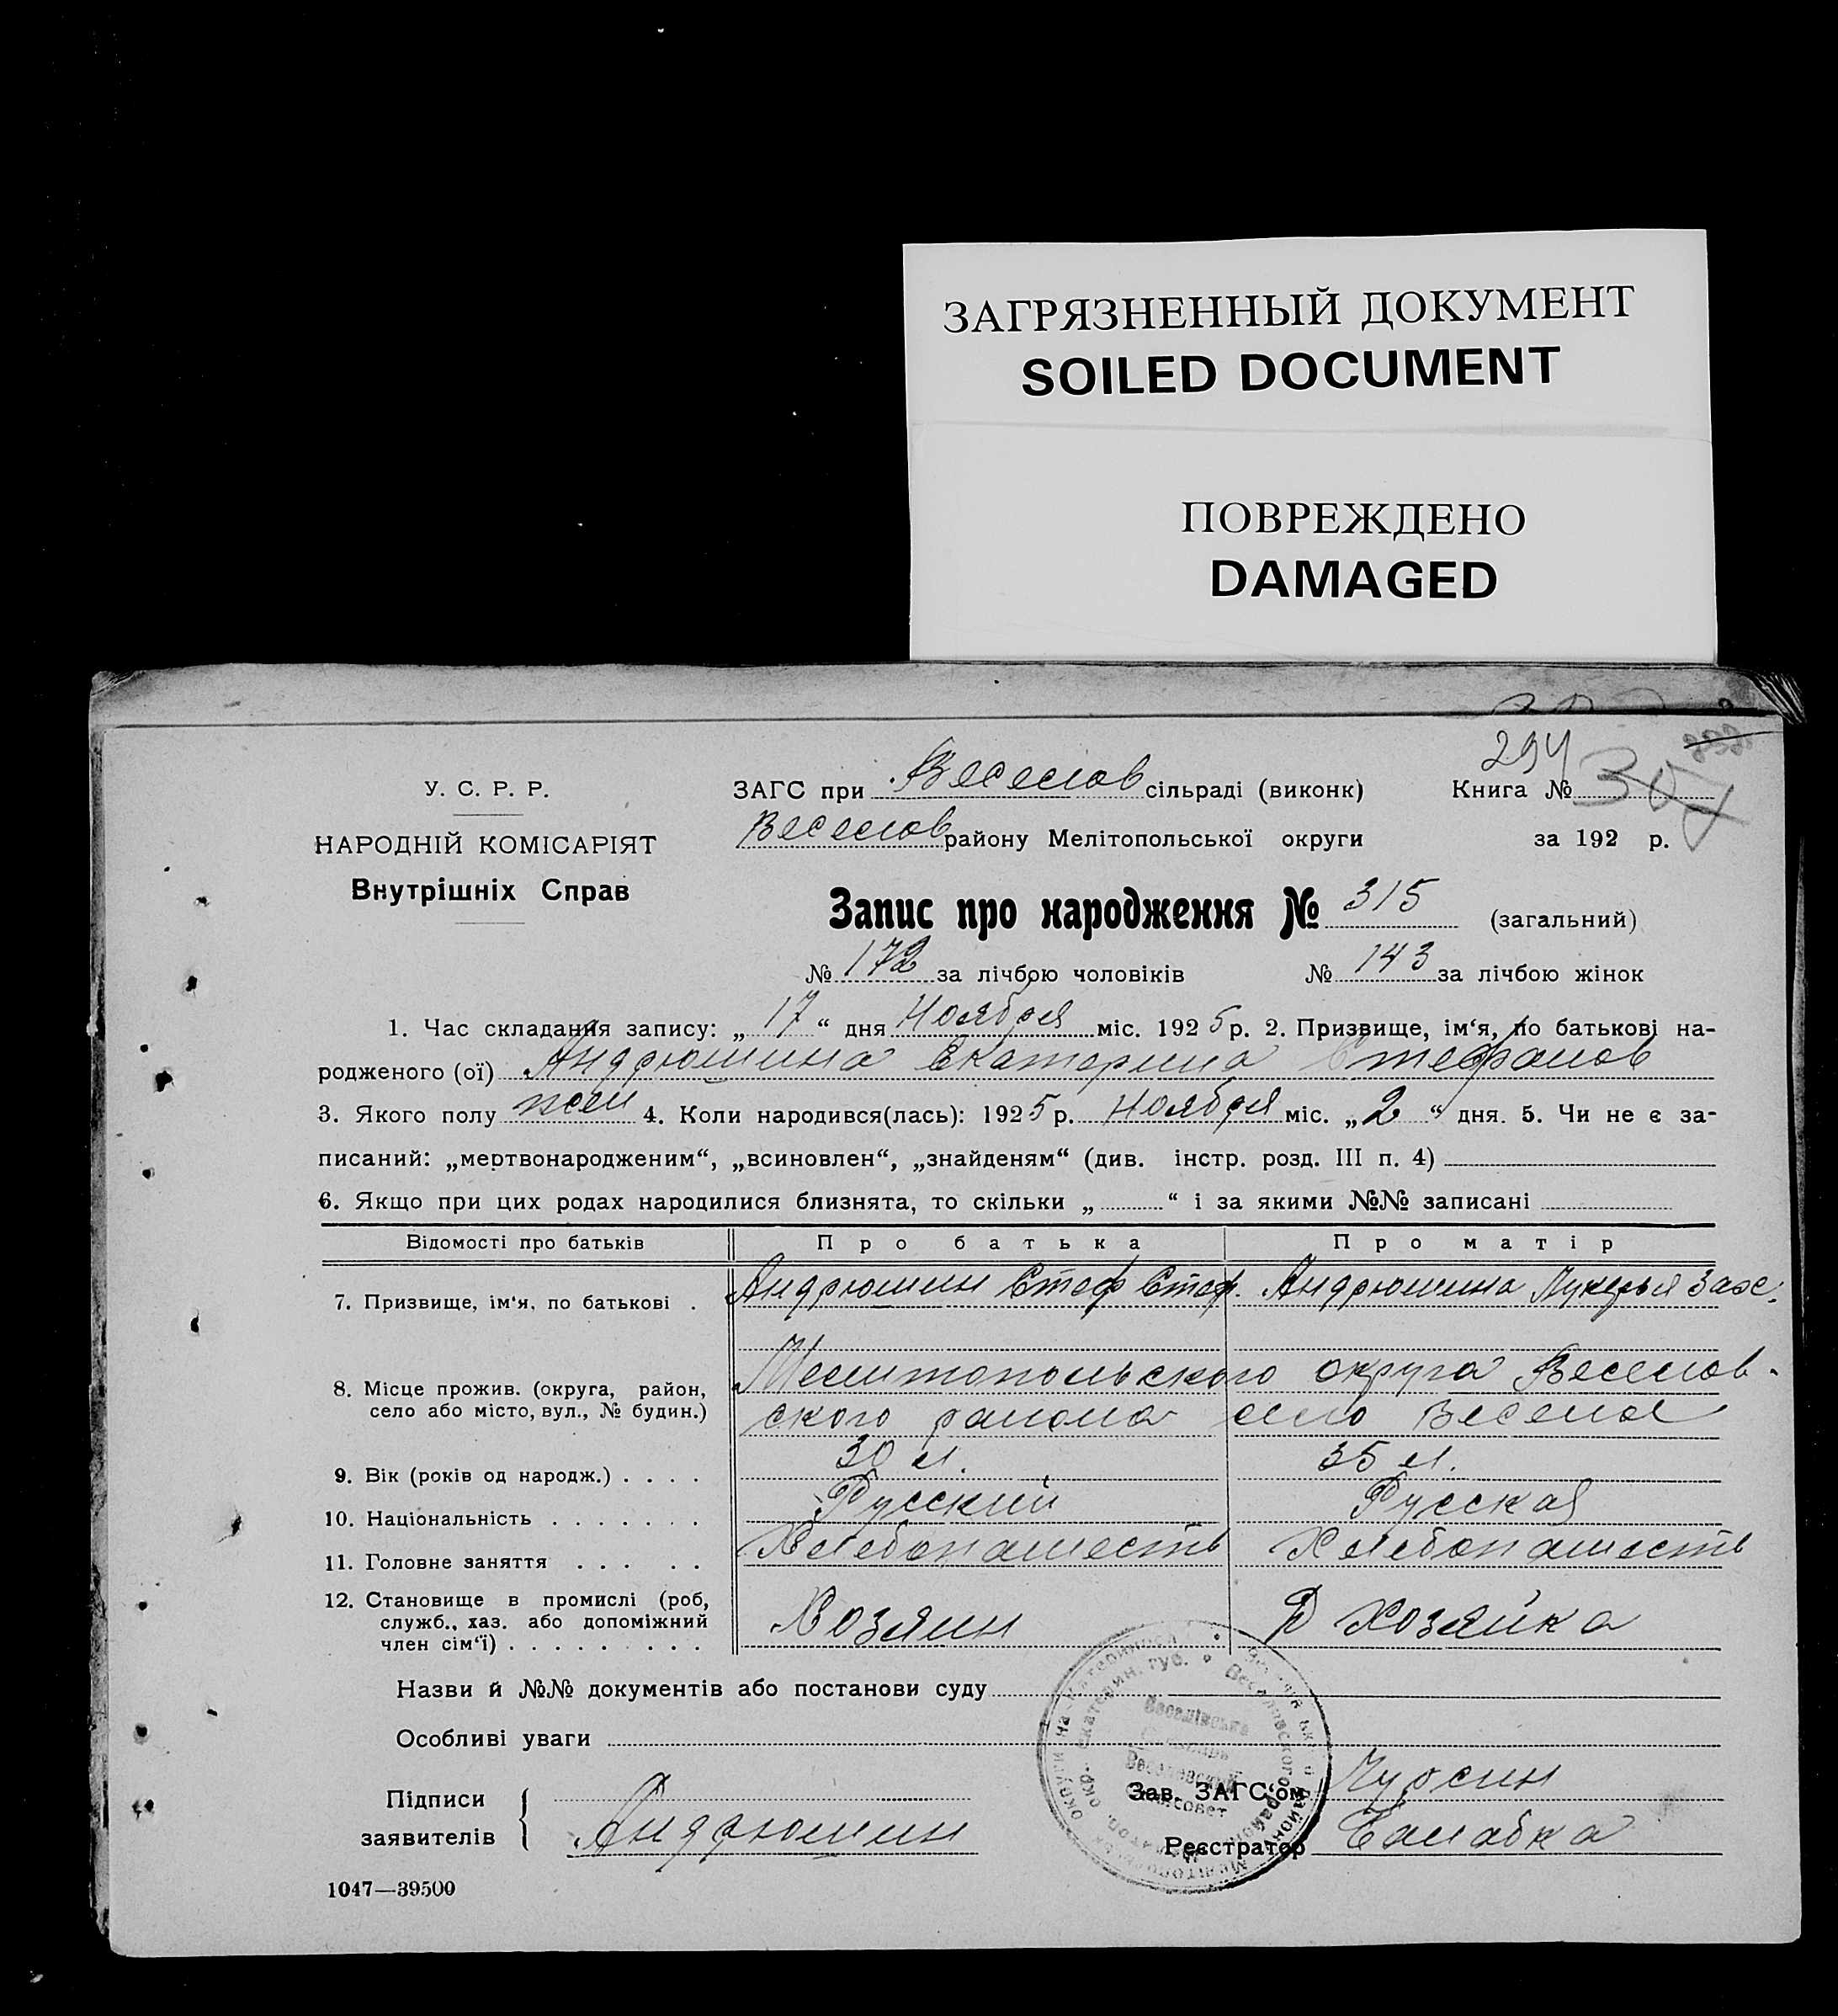 ЗАГРЯЗНЕННЫЙ ДОКУМЕНТ
SOILED DOCUMENT
ПОВРЕЖДЕНО
DAMAGED
294
У. С. Р. Р.
НАРОДНІЙ КОМІСАРІЯТ
Внутрішніх Справ
ЗАГС при Веселов сільраді (виконк) Книга № 307
Веселов району Мелітопольської округи за 192 р.
Запис про народження № 315 (загальний)
№ 172 за лічбою чоловіків № 143 за лічбою жінок
1. Час складання запису: „ 17 “ дня Ноября міс. 1925 р. 2. Призвище, ім‘я, по батькові на-
родженого (ої) Андрюшина Екатерина Стефанов
3. Якого полу жен 4. Коли народився(лась): 1925 р. Ноября міс. „ 2 “ дня. 5. Чи не є за-
писаний: „мертвонародженим“, „всиновлен“, „знайденям“ (див. інстр. розд. III п. 4)
6. Якщо при цих родах народилися близнята, то скільки „ “ і за якими №№ записані
Відомості про батьків Про батька Про матір
7. Призвище, ім‘я, по батькові . Андрюшин Стеф Стеф. Андрюшина Лукерья Зах.
8. Місце прожив. (округа, район, село або місто, вул., № будин.) Мелитопольского округа Веселов-
ского района село Веселое
9. Вік (років од народж.) . . . . 30 л. 35 л.
10. Національність . . . . . . . Русский Русская
11. Головне заняття . . . . . Хлебопашеств Хлебопашеств
12. Становище в промислі (роб,
служб., хаз. або допоміжний
член сім‘ї) . . . . . . . . . Хозяин Д Хозяйка
Назви й №№ документів або постанови суду
Особливі уваги
Підписи
заявителів Андрюшин
Зав. ЗАГС‘ом
Реєстратор
1047—39500